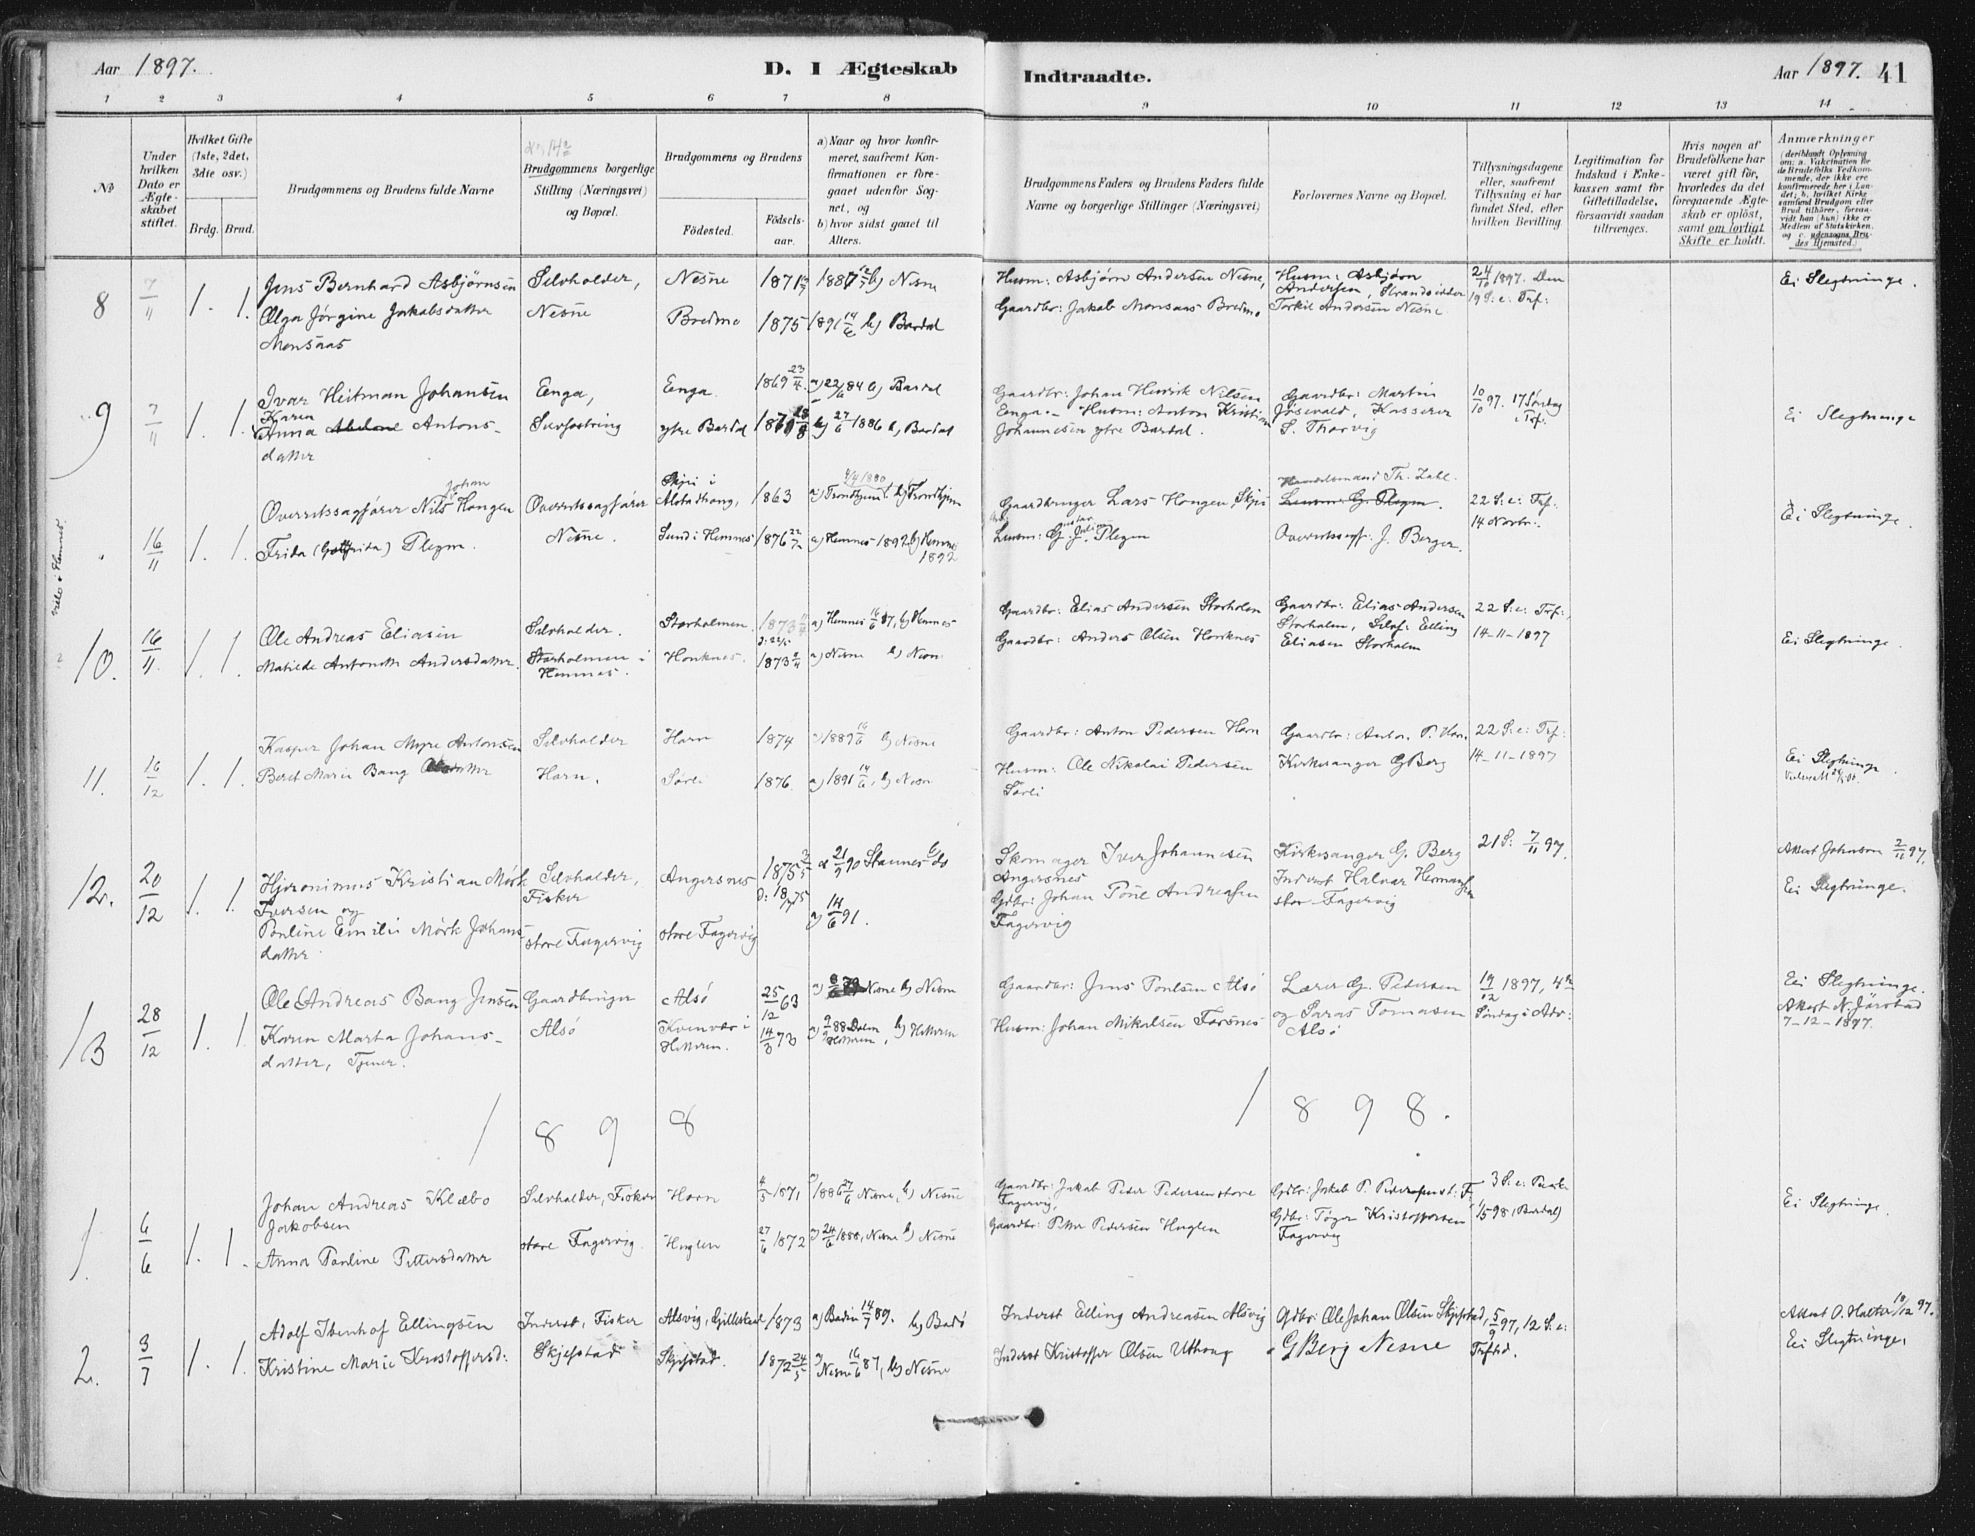 Aar 1897.
D. I Ægteskab Indtraadte.
Aar 1897. 41
1 2 3 4 5 6 7 8 9 10 11 12 13 14
№
Under hvilken Dato er Ægteskabet stiftet.
Hvilket Gifte (1ste, 2det, 3die osv.)
Brdg. Brud.
Brudgommens og Brudens fulde Navne
Brudgommens borgerlige Stilling (Næringsvei) og Bopæl.
Brudgommens og Brudens
Fødested.
Fødselsaar.
a) Naar og hvor konfirmeret, saafremt Konfirmationen er foregaaet udenfor Sognet, og
b) hvor sidst gaaet til Alters.
Brudgommens Faders og Brudens Faders fulde Navne og borgerlige Stillinger (Næringsvei)
Forlovernes Navne og Bopæl.
Tillysningsdagene eller, saafremt Tillysning ei har fundet Sted, efter hvilken Bevilling
Legitimation for Indskud i Enkekassen samt for Giftetilladelse, forsaavidt saadan tiltrænges.
Hvis nogen af Brudefolkene har været gift før, hvorledes da det foregaaende Ægteskab er opløst, samt om lovligt Skifte er holdt.
Anmærkninger (deriblandt Oplysning om: a. Vakcination for de Brudefolks Vedkommende, der ikke ere konfirmerede her i Landet; b. hvilket Kirkesamfund Brudgom eller Brud tilhører, forsaavidt han (hun) ikke er Medlem af Statskirken, og c. udensogns Brudes Hjemsted.)
8 7/11 1. 1.
Jens Bernhard Asbjørnsen Selvholder, Nesne 1871 b) Nesne
Husm: Asbjørn Andersen Nesne, Husm: Asbjørn Andersen, Strandsidder 24/10 1897. Den 19 S. e. Trf: Ei Slegtninge.
Olga Jørgine Jakobsdatter Nesne Bredmo 1875 1891 14/6 b) Bardal
Gaardbr: Jakob Monsaas Bredmo Torkil Andersen Nesne
Monsaas
9 7/11 1. 1.
Ivar Heitman Johansen Eenga, Eenga 1869 23/4. a) 22/6 84 b) Bardal
Gaardbr: Johan Henrik Nilsen Eenga. – Gaardbr: Martin 10/10 97. 17 Søndag e Trf:
Karen
Anna Antonsdatter ytre Bardal 27/6 1886 b) Bardal
Husm: Anton Kristian Johannesen ytre Bardal. Kasserer S. Thorvig Ei Slegtninge
" 16/11 1. 1.
Overretssagfører Nils Johan Hongen Overretssagfører Alstadhaug, 1863 4/4 1880 a) Trondhjem b) Trondhjem
Gaardbruger Lars Hongen Handelsmand Th. Zahl. 22 S. e: Trf: Ei Slegtninge.
Frida (Gottfrida) Plegm. Nesne. Sund i Hemnes 1876 22/7 a) Hemnes 1892 b) Hemnes 1892
Plegm Overretssagf: J. Berger. 14 Novbr:
10. 16/11. 1. 1.
Ole Andreas Eliasen Selvholder. Storholmen. 1873 a) Hemnes 16/6 87, b) Hemnes
Gaardbr: Elias Andersen Storholm Gaardbr: Elias Andersen Storholm, Selvf: Elling Eliasen Storholm 22 S. e: Trf: 14-11-1897 Ei Slegtninge.
Matilde Antonette Andersdatter. Storholmen i Hemnes. Honknes. 1873 a) Nesne b) Nesne
Gaardbr: Anders Olsen Honknes
11. 16/12 1. 1.
Kasper Johan Myre Antonsen Selvholder Horn 1874 1889 16/6 b) Nesne
Gaardbr: Anton Pedersen Horn Gaardbr: Anton. P. Horn. 22 S. e: Trf: 14-11-1897
Beret Marie Bang Olsdatter Horn. Sørli 1876. a) 1891 14/6, b) Nesne
Husm: Ole Nikolai Pedersen Sørli Kirkesanger G Berg Ei Slegtninge
12. 20/12 1. 1.
Hjeronimus Kristian Mørk Iversen og Selvholder, Fisker Angersnes 1875 a) 21/9 90 Stamnes b) do
Skomager Iver Johannesen Angersnes Kirkesanger G. Berg 21 S. 7/11 97. Attest Johnson 2/11 97.
Pauline Emilie Mørk Johansdatter store Fagervig store Fagervig a) 14/6 91.
Gdbr: Johan Poul Andreassen Fagervig Inderst Halvar Hermansen store Fagervig Ei Slegtninge.
13 28/12 1. 1.
Ole Andreas Bang Jensen Gaardbruger Alsø 25/12 63 Nesne b) Nesne
Gaardbr: Jens Poulsen Alsø Lærer G. Pedersen og Saras Tomasen Alsø 19/12 1897, 4de Søndag i Adv: Ei Slegtninge.
Karen Marta Johansdatter, Tjener. Alsø Kvenvær i Hitteren. 14/3 73 88 Dolm Hitteren, b) Hitteren
Husm: Johan Mikalsen Forsnes Attest N. Jørstad 7-12-1897.
1898
1898.
1. 6/6 1. 1.
Johan Andreas Klæbo Jakobsen Selvholder, Fisker Horn 4/5 1871 1886 27/6 Nesne, b) Nesne
Gaardbr: Jakob Peder Pedersen store Fagervig, Gdbr: Jakob P. Pedersen st: F. 3 S. e: Paaske Ei Slegtninge.
Anna Pauline Pettersdatter store Fagervig. Huglen 27/6 1872 a) 24/6 1888, Nesne b) Nesne
Gaardbr: Petter Pedersen Huglen Gdbr: Tøger Kristoffersen Fagervig 1/5 98 (Bardal)
2. 3/7 1. 1.
Adolf Ibenhof Ellingsen Inderst, Fisker Alsvig, Gilleskaal 1873 a) Bodin 14/7 89. b) Bodø
Inderst Elling Andreasen Alsvig Gdbr: Ole Johan Olsen Skjefstad, 5/9 97, 12 S. e: Trftid. Attest O. Halter 10/12 97.
Kristine Marie Kristoffersd: Skjefstad Skjefstad. 1872 24/5 a) Nesne 16/6 87, b) Nesne
Inderst Kristoffer Olsen Uthaug G Berg Nesne Ei Slegtninge